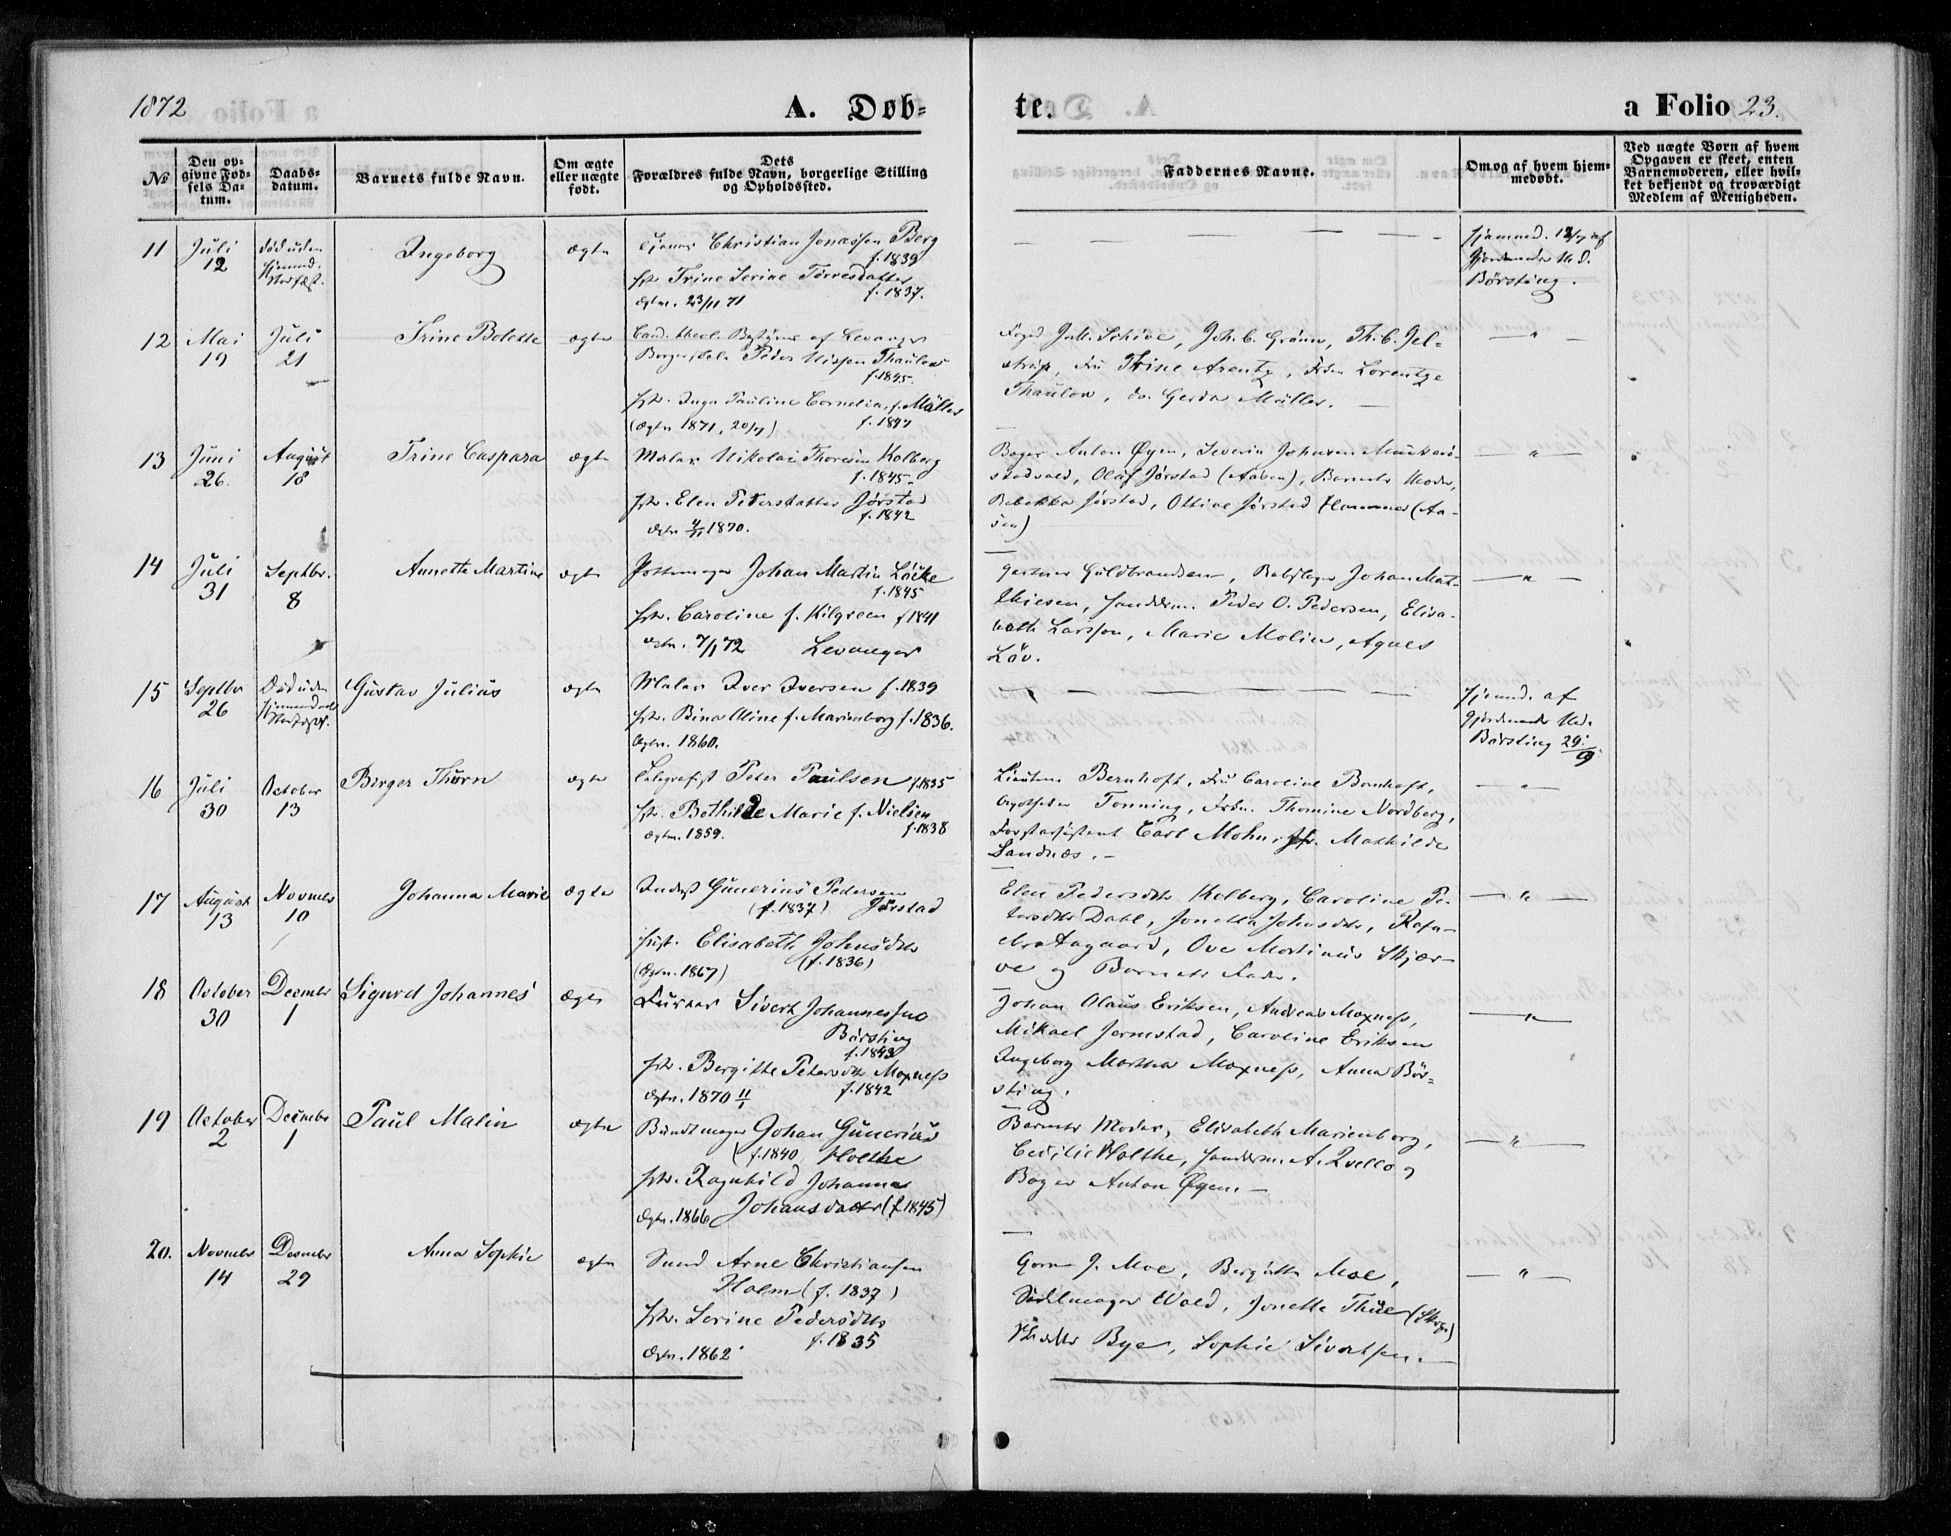 1872
A. Døb-
te.
a Folio 23.
№
Den op-
givne Fød-
sels Da-
tum.
Daabs-
datum.
Barnets fulde Navn.
Om ægte
eller uægte
født.
Dets
Forældres fulde Navn, borgerlige Stilling
og Opholdssted.
Faddernes Navne.
Om og af hvem hjem-
medøbt.
Ved uægte Børn af hvem
Opgaven er skeet, enten
Barnemoderen, eller hvil-
ket bekjendt og troværdigt
Medlem af Menigheden.
11 Juli 12
Død uden
hjemmed.
Stadfæst.
Ingeborg
ægte
Christian Jonassen Berg
f. 1839
Trine Serine Torresdatter
f. 1837.
Ægtev. 23/11 71
hjemmed. 12/7 af
Gjordemoder M. D.
Børsting.
12 Mai 19
Juli 21
Trine Bolette
ægte
Cand. theol. Bestyrer af Levanger
Borgerskole Peder Nissen Thaulow
f. 1845.
Hstr. Inga Pauline Cornelia, f. Müller
(Ægtev. 1871, 20/7) f. 1847
Foged Schive, Joh. C. Grønn, Th. C. Jel-
strup, Fru Thrine Arentz, Frkn Lorentze
Thaulow, do. Gerda Müller. —
— " —
13 Juni 26.
August 18
Trine Caspara
ægte
Maler Nikolai Kolberg
f. 1845.
Hstr. Elen Pedersdatter Jørstad
f. 1842
Ægtev. 4/11 1870.
Bager Anton Øyen, Severin Johnsen
Olaf Jørstad (Aasen), Barnets Moder,
Rebekka Jørstad, Ottine Jørstad Hammer (Aa-
sen)
— " —
14 Juli 31
Septbr. 8
Annette Martine
ægte
Pottemager Johan Martin Löcke
f. 1845
Hstr. Caroline f. Kilgreen f 1841
Ægtev. 7/1 72 Levanger
Gartner Guldbrandsen, Rebslager Johan Mat-
thiesen, Handelsm. Peder O. Pedersen, Elisa-
beth Larssen, Marie Molin, Agnes
Löv.
— " —
15 Septbr 26
Død uden
hjemmed.
Stadfæst.
Gustav Julius
ægte
Maler Iver Iversen f. 1839
Hstr. Bina Oline f. Marienborg f. 1836.
Ægtev. 1860.
hjemmd. af
Gjordemoder Md.
Børsting 29/9.
16 Juli 30
October 13
Birger Thorn
ægte
Telegrafist Peter Paulsen f. 1835
Hstr. Bothilde Marie f. Nielsen
f. 1838
Ægtev. 1859.
Bernhoft, Fru Caroline Bernhoft,
Apotheker Tonning, Frkn. Thomine Nordberg,
Forstassistent Carl Mohn, Jfr. Mathilde
Sandnæs. —
— " —
17 August 13
Novmbr 10
Johanna Marie
ægte
Inderst Gunerius Pedersen
(f. 1837) Jørstad
Hust. Elisabeth Johnsdtr
(Ægtev. 1867) (f. 1836)
Elen Pedersdtr Kolberg, Caroline Pe-
tersdtr Dahl, Jonetta Johnsdtr,
Aagaard, Ove Martinus Skjær-
ve og Barnets Fader.
— " —
18 October 30
Decmbr 1
Sigurd Johannes
ægte
Sivert Johannessen
Børsting
f. 1843
Hstr. Bergitte Petersdtr Moxness
Ægtev. 1870 11/1 f. 1842
Johan Olaus Eriksen, Andreas Moxness,
Mikael Jernstad, Caroline Eriksen
Ingeborg Martha Moxness, Anna Bør-
sting.
— " —
19 October 2
Decmbr 1
Paul Malin
ægte
Bundtmager Johan Gunerius
(f. 1840, Holthe
Hstr. Ragnhild Johanna
Ægtev. 1866 Johansdatter (f. 1845)
Barnets Moder, Elisabeth Marienborg,
Cecilie Holthe, Handelsm. A. Qvello og
Bager Anton Øyen. —
— " —
20. Novmbr 14
Decmbr 29
Anna Sophie
ægte
Smed Arne Christiansen
Holm (f. 1837)
Hstr. Serine Pedersdtr
f. 1835
Ægtev. 1862
J. Moe, Bergitta Moe,
Sadelmager Wold, Jonetta Thue
Bye, Sophie Sivertsen. —
— " —